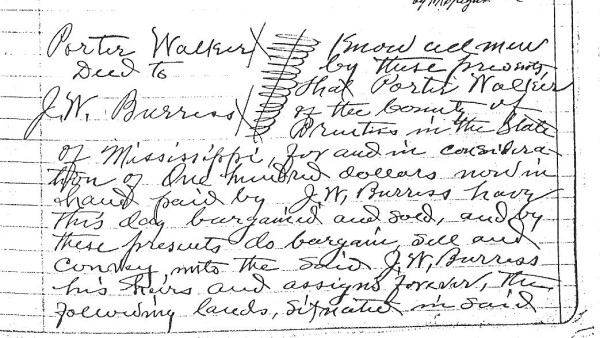 Porter Walker
Deed to
J.W. Burriss
Know all men
by these presents
that Porter Walker
of the County of
Prentiss in the State
of Mississippi, for and in considera-
tion of One hundred dollars now in
hand paid by J.W. Burriss have
this day bargained and sold, and by
these presents do bargain, sell and
convey, unto the said J.W. Burriss
his heirs and assigns forever, the
following lands, situated in said